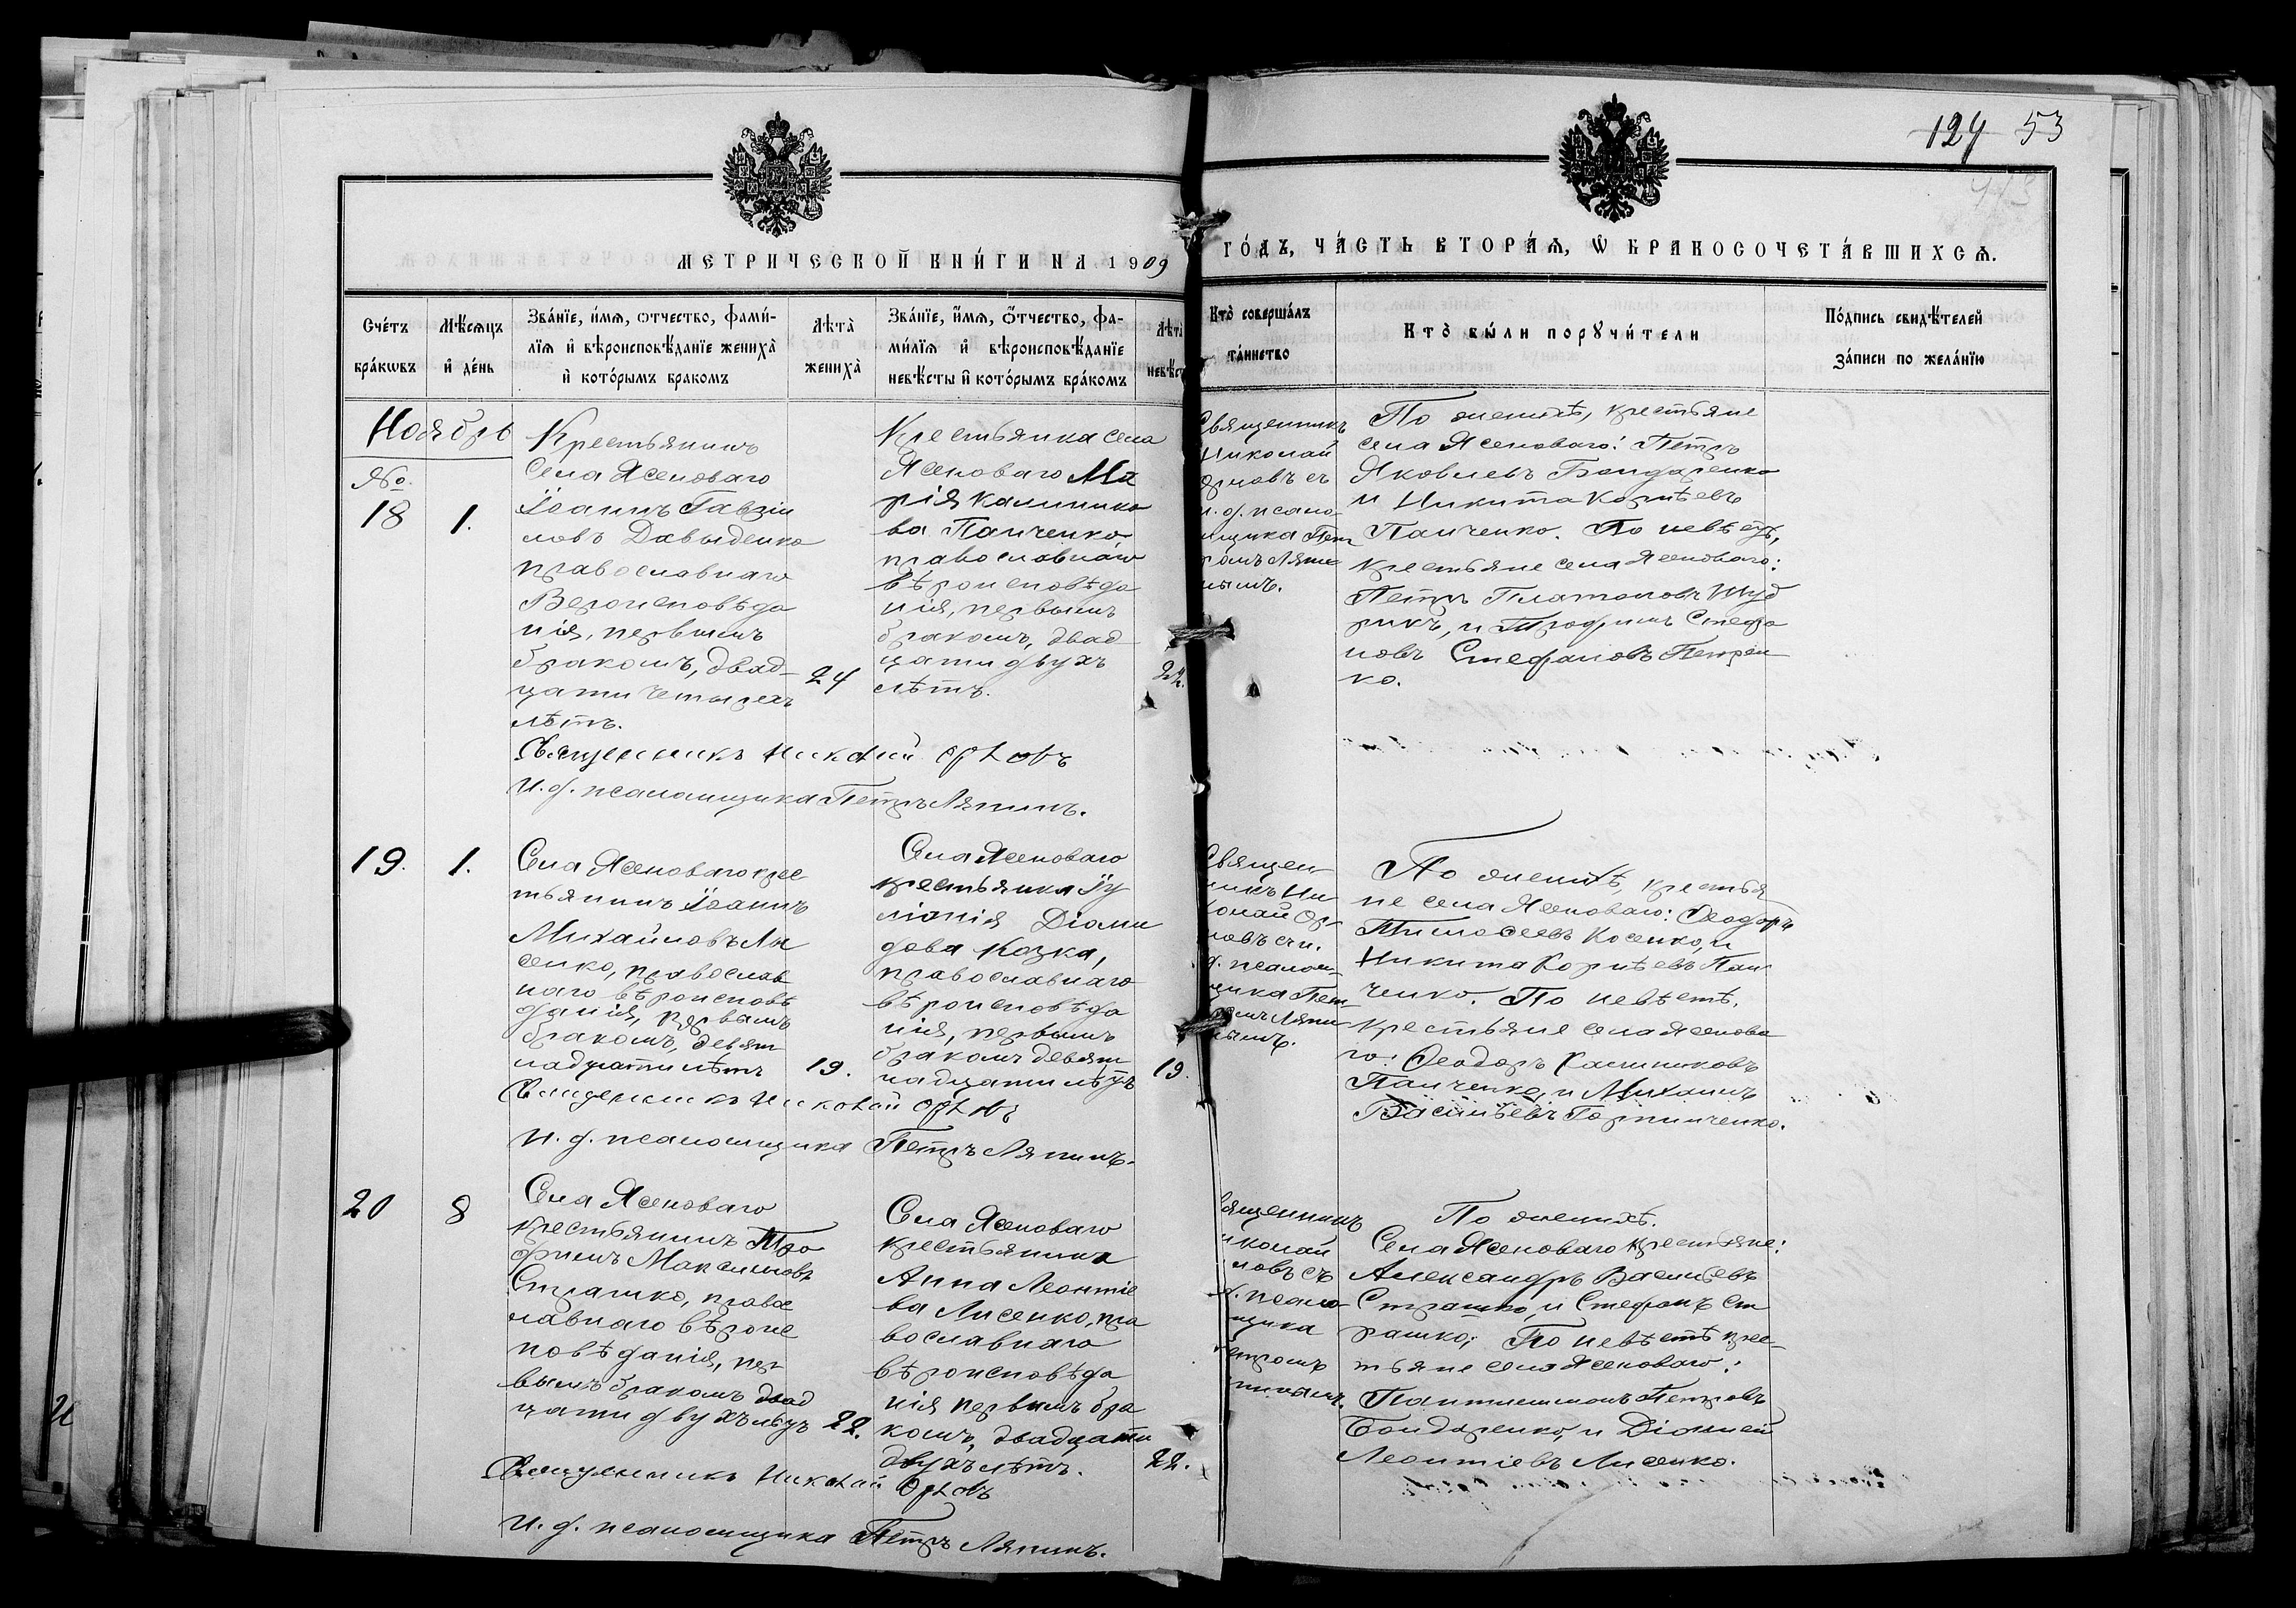 124 53
МЕТРИЧЕСКОЙ КНИ́ГИ НА 1909
ГО́ДЪ, ЧА́СТЬ ВТОРА́Ѧ, Ѡ БРАКОСОЧЕТА́ВШИХСѦ.
Сче́тъ
бра́кѡвъ
Мѣ́сяцъ
и҆ де́нь
Зва́нїе, и҆́мѧ, ѻтчество, фами́-
лїѧ и҆ вѣроисповѣ́данїе жениха̀
и҆ кото́рымъ бракомъ
Лѣта̀
жениха̀
Зва́нїе, и҆́мѧ, ѻ҆́тчество, фа-
ми́лїѧ и҆ вѣроисповѣ́данїе
невѣ́сты и҆ кото́рымъ бра́комъ
Лѣта̀
невѣ́с
Кто̀ соверша́лъ
та́инство
Кто̀ бы́ли порꙋчи́тели
По́дпись свидѣ́телей
за́писи по жела́нїю
Ноябрь
№
18
1.
Крестьянинъ
Села Ясеноваго
Іоаннъ Гавріи
ловъ Давыденко
православнаго
Вероисповѣда
нія, первымъ
бракомъ, двад-
цати четырехъ
лѣтъ.
24
Крестьянка села
Ясеноваго Ма
рія Калинико
ва Панченко
православнаго
вѣроисповѣда
нія, первымъ
бракомъ, двад
цати двухъ
лѣтъ.
22.
Священникъ
Николай
рловъ съ
и. д. псало
мщика Пет
ромъ Ляпи
нымъ.
По женихѣ, крестьяне
села Ясеноваго: Петръ
Яковлевъ Бондаренко
и Никита Корнѣевъ
Панченко. По невѣстѣ,
крестьяне села Ясеноваго:
Петръ Платоновъ Шуд
рикъ, и Трофимъ Стефа
новъ Стефановъ Петрен
ко.
Священникъ Николай Орловъ
И. д. псаломщика Петръ Ляпинъ.
19.
1.
Села Ясеноваго крес
тьянинъ Іоаннъ
Михайловъ Лы
сенко, православ
наго вѣроисповѣ
данія, первымъ
бракомъ, девят
надцати лѣтъ
19.
Села Ясеноваго
крестьянка Іу
ліанія Діоми
дова Козка,
православнаго
вѣроисповѣда
нія, первымъ
бракомъ девят
надцати лѣтъ
19.
Священ
никъ Ни
колай Ор
ловъ съ и.
д. псалом-
щика Пет-
ромъ Ляпи
нымъ.
По женихѣ, крестья
не села Ясеноваго: Ѳеодоръ
Тимоѳеевъ Косенко, и
Никита Корнѣевъ Пан
ченко. По невѣстѣ,
крестьяне села Ясенова
го: Ѳеодоръ Калиниковъ
Панченко, и Михаилъ
Васильевъ Горпинченко.
Священникъ Николай Орловъ
И. д. псаломщика Петръ Ляпинъ.
20
8
Села Ясеноваго
крестьянинъ Тро
фимъ Максимовъ
Страшко, правос
лавнаго вѣроис
повѣданія, пер
вымъ бракомъ двад
цати двухъ лѣтъ
22.
Села Ясеноваго
крестьянина
Анна Леонтіе
ва Лисенко, пра
вославнаго
вѣроисповѣда
нія первымъ бра
комъ, двадцати
двухъ лѣтъ.
22.
вященникъ
иколай
ловъ съ
д. псало-
мщика
етромъ
По женихѣ.
Села Ясеноваго крестьяне:
Александръ Васильевъ
Страшко, и Стефанъ Ст
рашко; По невѣстѣ крес-
тьяне села Ясеноваго:
Пантилимонъ Петровъ
Бондаренко, и
Леонтіевъ Лисенко.
Священникъ Николай Орловъ
И. д. псаломщика Петръ Ляпинъ.